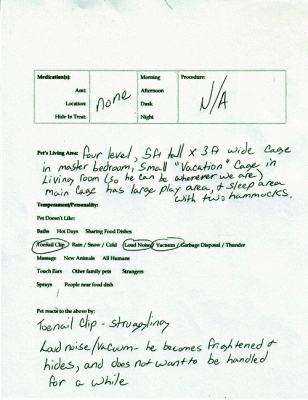 Medication(s): Morning Procedure:
Amt: none Afternoon N/A
Location: Dusk
Hide In Treat: Night
Pet's Living Area: four level, 5ft tall x 3ft wide cage
in master bedroom, Small "Vacation" Cage in
Living room (so he can be wherever we are)
main cage has large play area, & sleep area
with two hammocks.
Temperament/Personality:
Pet Doesn't Like:
Baths Hot Days Sharing Food Dishes
Toenail Clip / Rain / Snow / Cold Loud Noise / Vacuum / Garbage Disposal / Thunder
Massage New Animals All Humans
Touch Ears Other family pets Strangers
Sprays People near food dish
Pet reacts to the above by:
Toenail Clip - struggling
Loud noise/Vacuum - he becomes frightened &
hides, and does not want to be handled
for a while